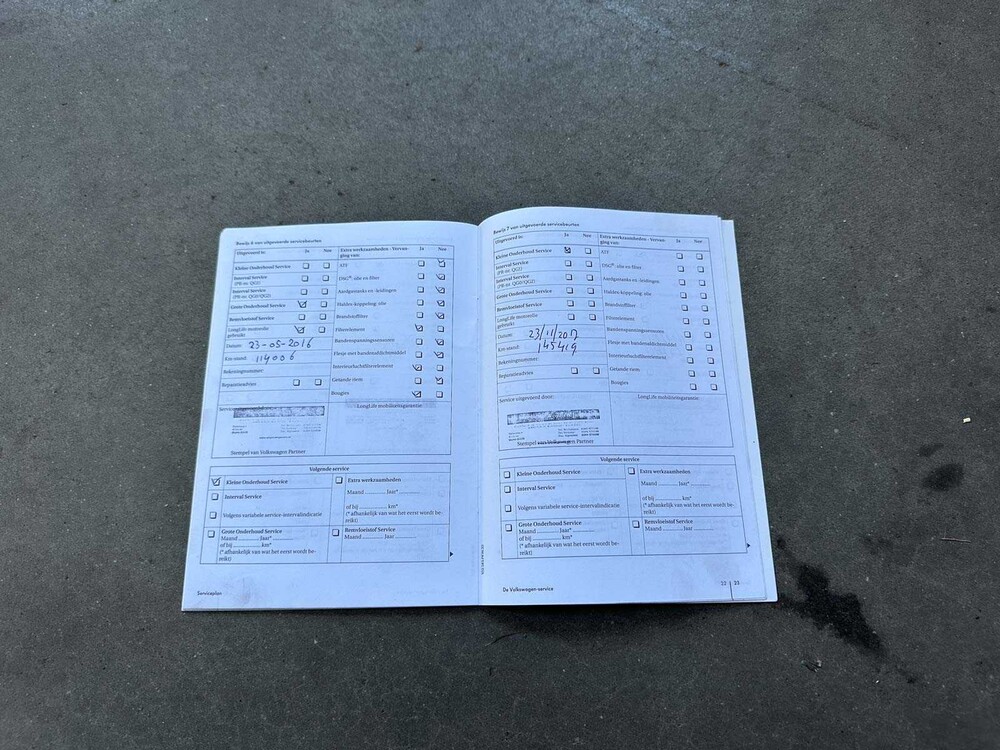 Bewijs 6 van uitgevoerde servicebeurten
Uitgevoerd is: Ja Nee Extra werkzaamheden - Vervan-
ging van: Ja Nee
Kleine Onderhoud Service
Interval Service
(PR-nr. QG1)
Interval Service
(PR-nr. QG0/QG2)
Grote Onderhoud Service
Remvloeistof Service
LongLife motorolie
gebruikt
Datum: 23-05-2016
Km-stand: 114006
Rekeningnummer:
Reparatieadvies
ATF
DSG®-olie en filter
Aardgastanks en -leidingen
Haldex-koppeling: olie
Brandstoffilter
Filterelement
Bandenspanningssensoren
Flesje met bandenafdichtmiddel
Interieurluchtfilterelement
Getande riem
Bougies
LongLife mobiliteitsgarantie
Stempel van Volkswagen Partner
Volgende service
Kleine Onderhoud Service
Interval Service
Volgens variabele service-intervalindicatie
Grote Onderhoud Service
Maand Jaar*
of bij km*
(* afhankelijk van wat het eerst wordt be-
reikt)
Extra werkzaamheden
Maand Jaar*
of bij km*
(* afhankelijk van wat het eerst wordt be-
reikt)
Remvloeistof Service
Maand Jaar
Serviceplan
Bewijs 7 van uitgevoerde servicebeurten
Uitgevoerd is: Ja Nee Extra werkzaamheden - Vervan-
ging van: Ja Nee
Kleine Onderhoud Service
Interval Service
(PR-nr. QG1)
Interval Service
(PR-nr. QG0/QG2)
Grote Onderhoud Service
Remvloeistof Service
LongLife motorolie
gebruikt
Datum: 23/11/2017
Km-stand: 145419
Rekeningnummer:
Reparatieadvies
ATF
DSG®-olie en filter
Aardgastanks en -leidingen
Haldex-koppeling: olie
Brandstoffilter
Filterelement
Bandenspanningssensoren
Flesje met bandenafdichtmiddel
Interieurluchtfilterelement
Getande riem
Bougies
Service uitgevoerd door:
LongLife mobiliteitsgarantie:
Stempel van Volkswagen Partner
Volgende service
Kleine Onderhoud Service
Interval Service
Volgens variabele service-intervalindicatie
Grote Onderhoud Service
Maand Jaar*
of bij km*
(* afhankelijk van wat het eerst wordt be-
reikt)
Extra werkzaamheden
Maand Jaar*
of bij km*
(* afhankelijk van wat het eerst wordt be-
reikt)
Remvloeistof Service
Maand Jaar
De Volkswagen-service
22 23